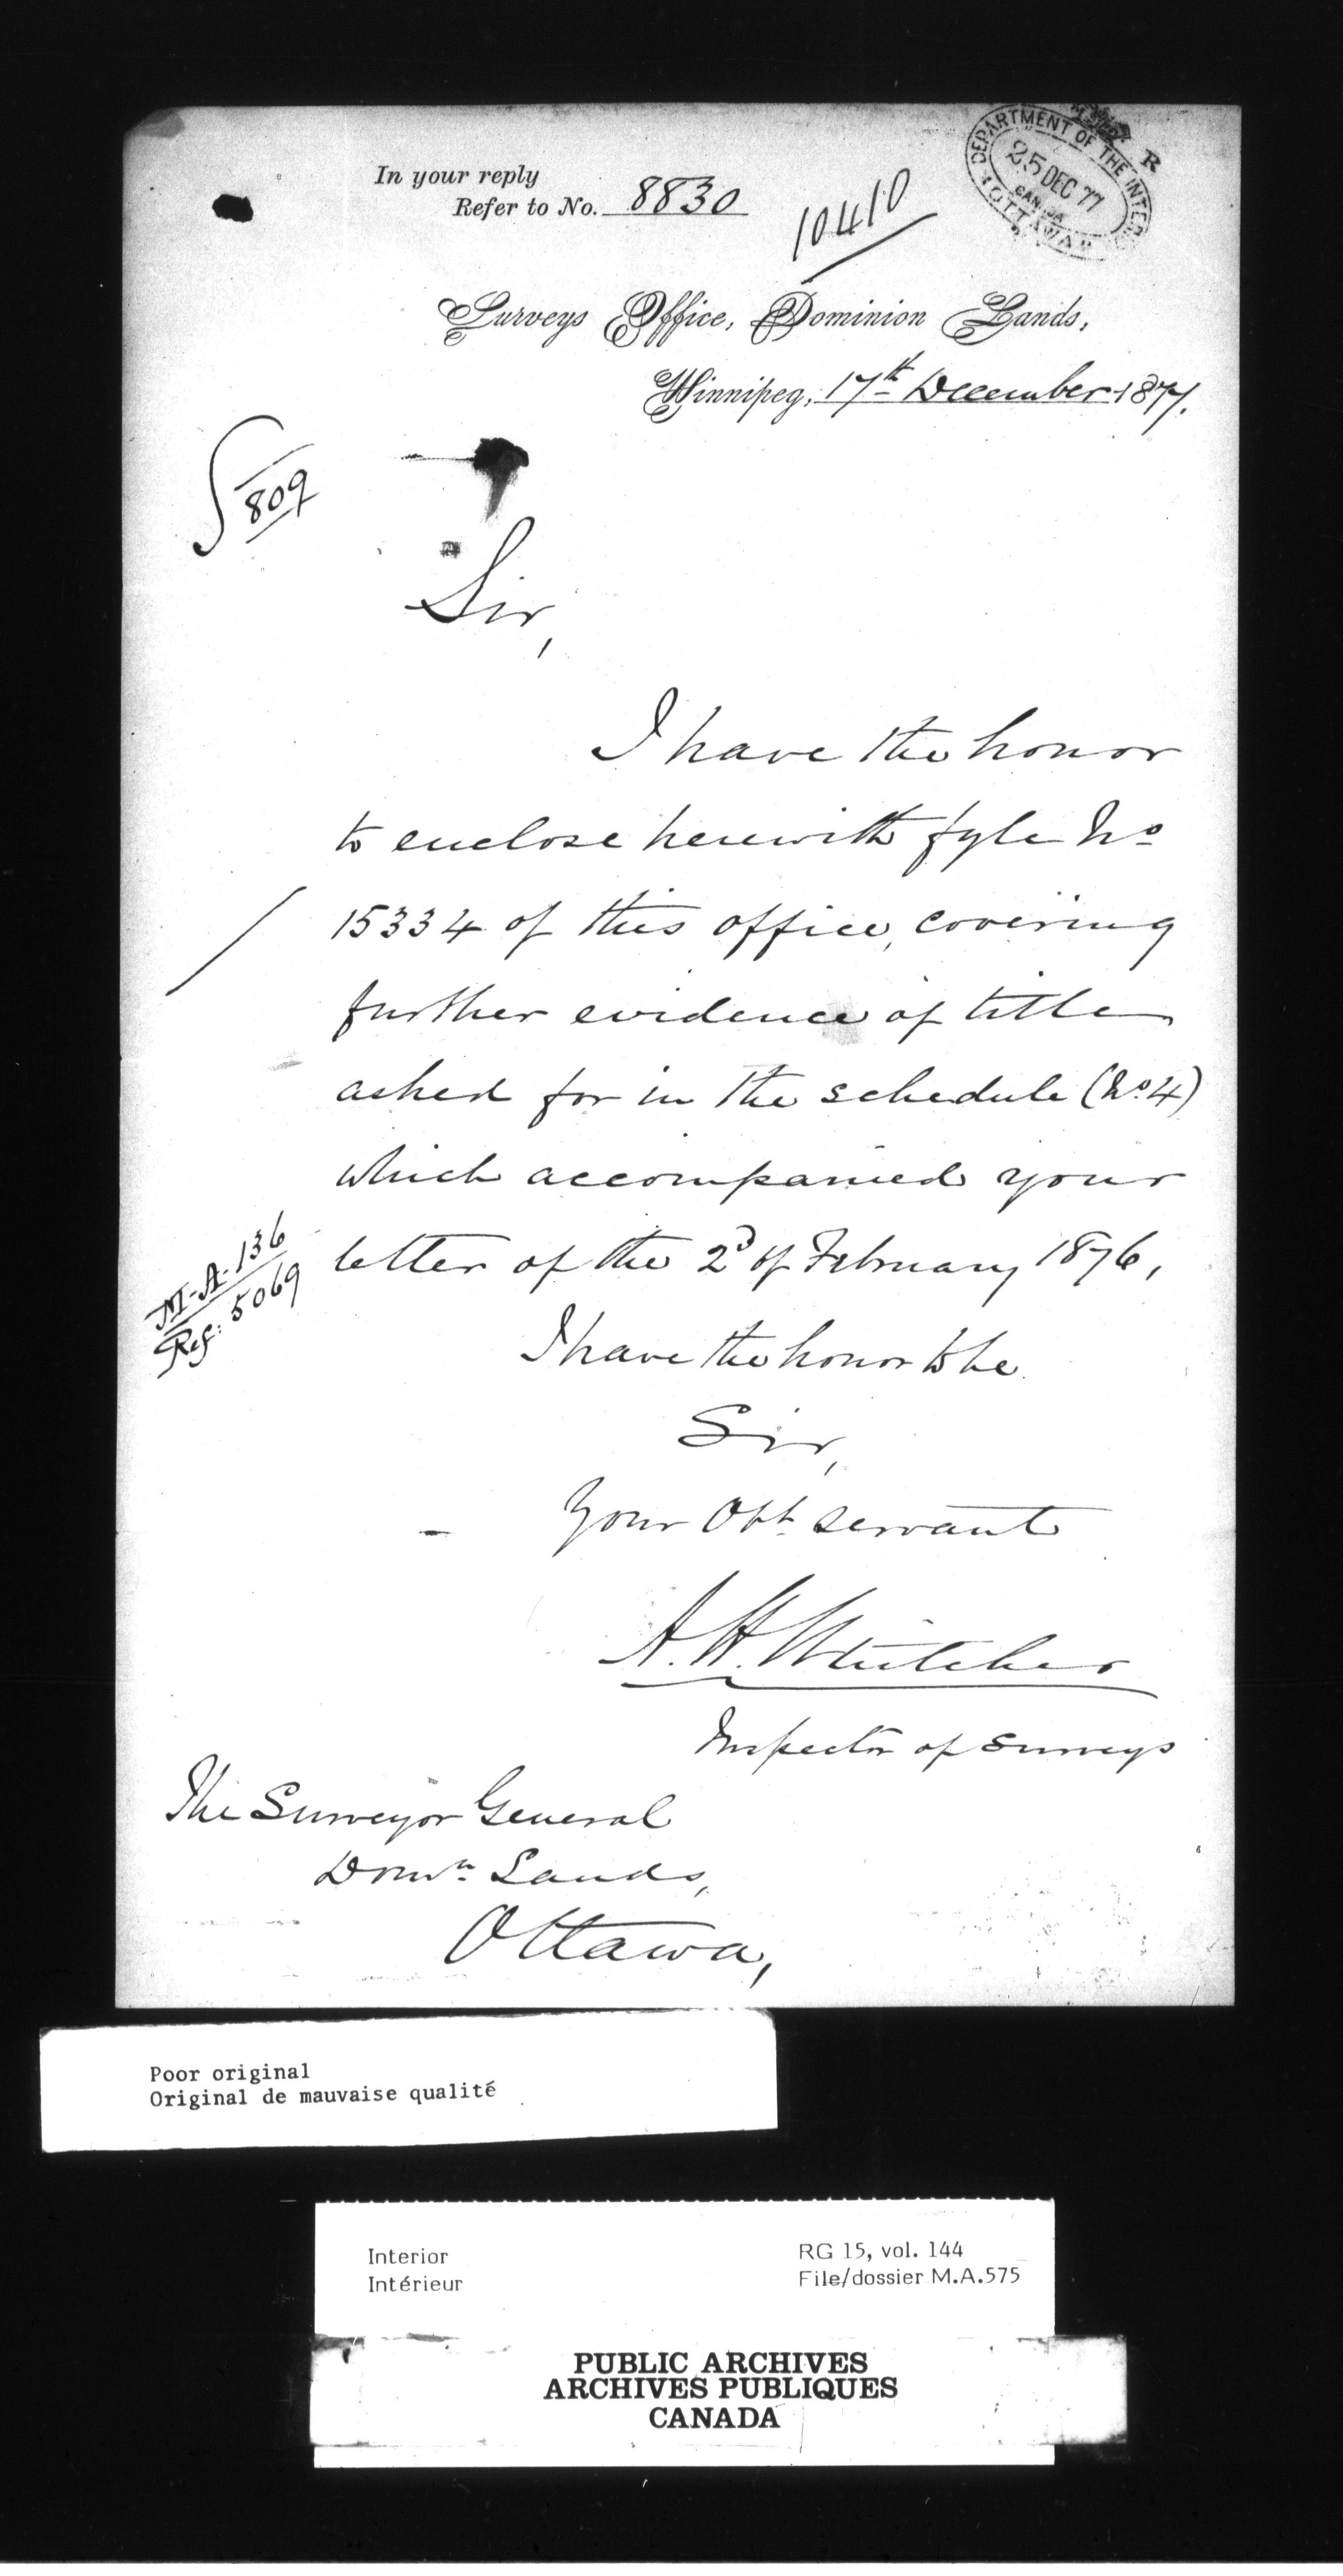 In your reply
Refer to No. 8830
10410
DEPARTMENT OF THE INTERIOR
25 DEC 77
CANADA
OTTAWA
R
Surveys Office, Dominion Lands,
Winnipeg, 17th December 1877.
809
Sir,
I have the honor
to enclose herewith fyle No
15334 of this office, covering
further evidence of title
asked for in the schedule (No 4)
which accompanied your
letter of the 2d of February 1876,
M-A-136
Ref: 5069
I have the honor to be
Sir,
Your Obt servant
A. H. Whitcher
Inspector of Surveys
The Surveyor General
Domn Lands,
Ottawa,
Poor original
Original de mauvaise qualité
Interior
Intérieur
RG 15, vol. 144
File/dossier M.A.575
PUBLIC ARCHIVES
ARCHIVES PUBLIQUES
CANADA